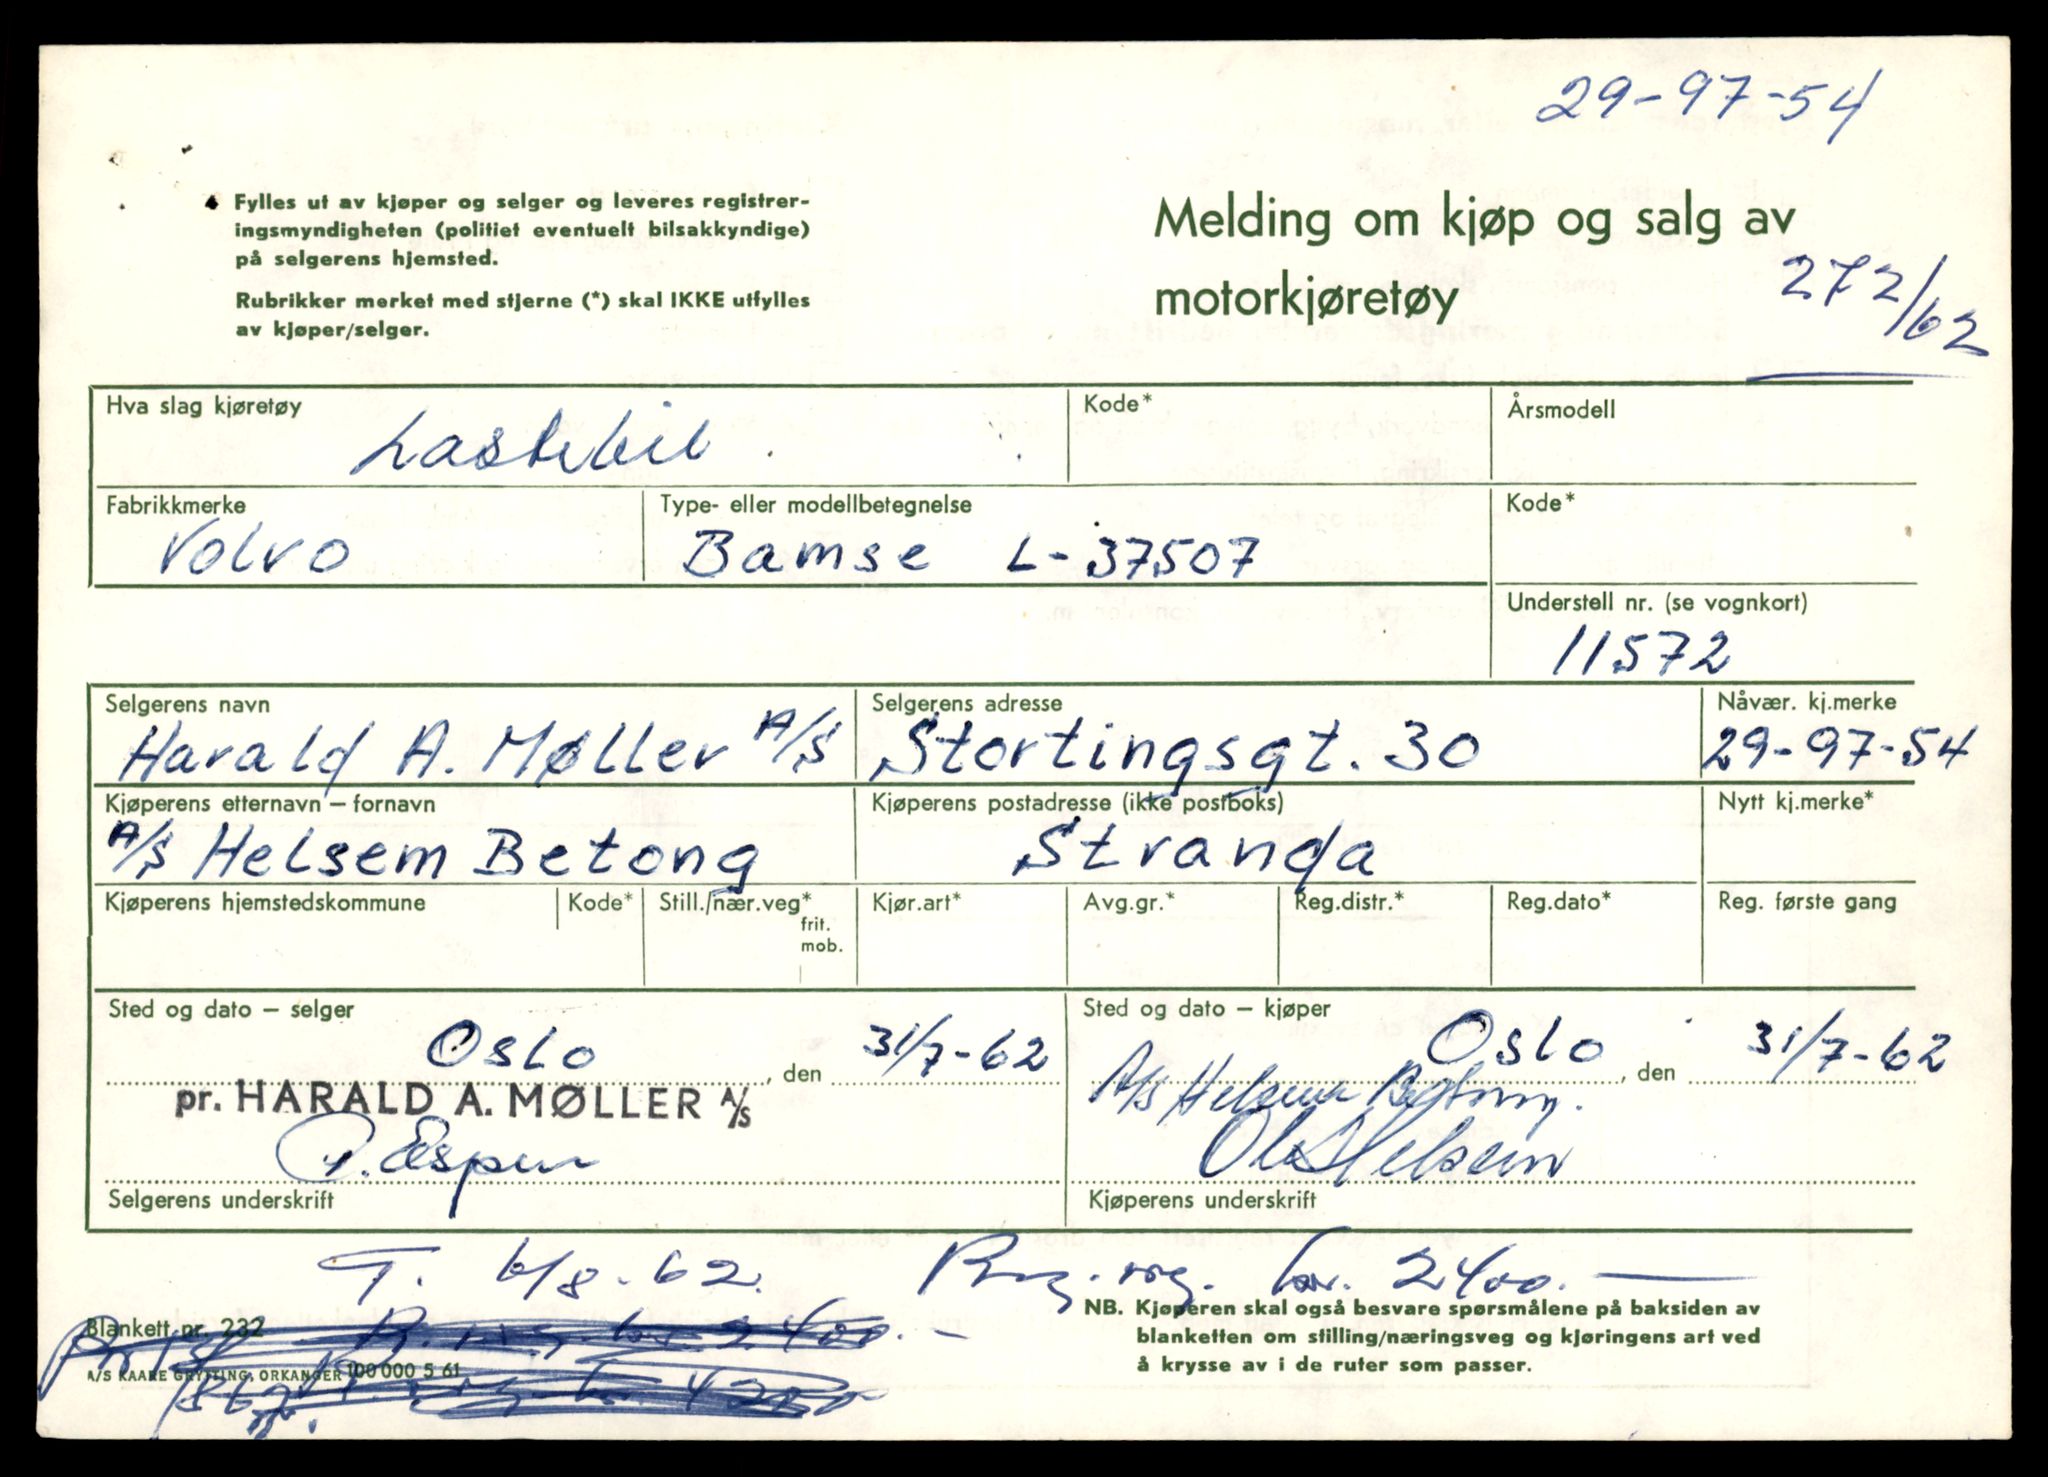 29-97-54
Fylles ut av kjøper og selger og leveres registrer-
ingsmyndigheten (politiet eventuelt bilsakkyndige)
på selgerens hjemsted.
Rubrikker merket med stjerne (*) skal IKKE utfylles
av kjøper/selger.
Melding om kjøp og salg av
motorkjøretøy
272/62
Hva slag kjøretøy
Lastebil
Kode*
Årsmodell
Fabrikkmerke
Volvo
Type- eller modellbetegnelse
Bamse L-37507
Kode*
Understell nr. (se vognkort)
11572
Selgerens navn
Harald A. Møller A/S
Selgerens adresse
Stortingsgt. 30
Nåvær. kj.merke
29-97-54
Kjøperens etternavn – fornavn
A/S Helsem Betong
Kjøperens postadresse (ikke postboks)
Stranda
Nytt kj.merke*
Kjøperens hjemstedskommune
Kode*
Still./nær.veg*
frit.
mob.
Kjør.art*
Avg.gr.*
Reg.distr.*
Reg.dato*
Reg. første gang
Sted og dato – selger
Oslo, den 31/7-62
pr. HARALD A. MØLLER A/S
Selgerens underskrift
Sted og dato – kjøper
Oslo, den 31/7-62
A/S Helsem Betong.
Ola Helsem
Kjøperens underskrift
T. 6/8-62. kr. 2400.—
NB. Kjøperen skal også besvare spørsmålene på baksiden av
blanketten om stilling/næringsveg og kjøringens art ved
å krysse av i de ruter som passer.
Blankett nr. 232
A/S KAARE GRYTTING, ORKANGER 100 000 5 61